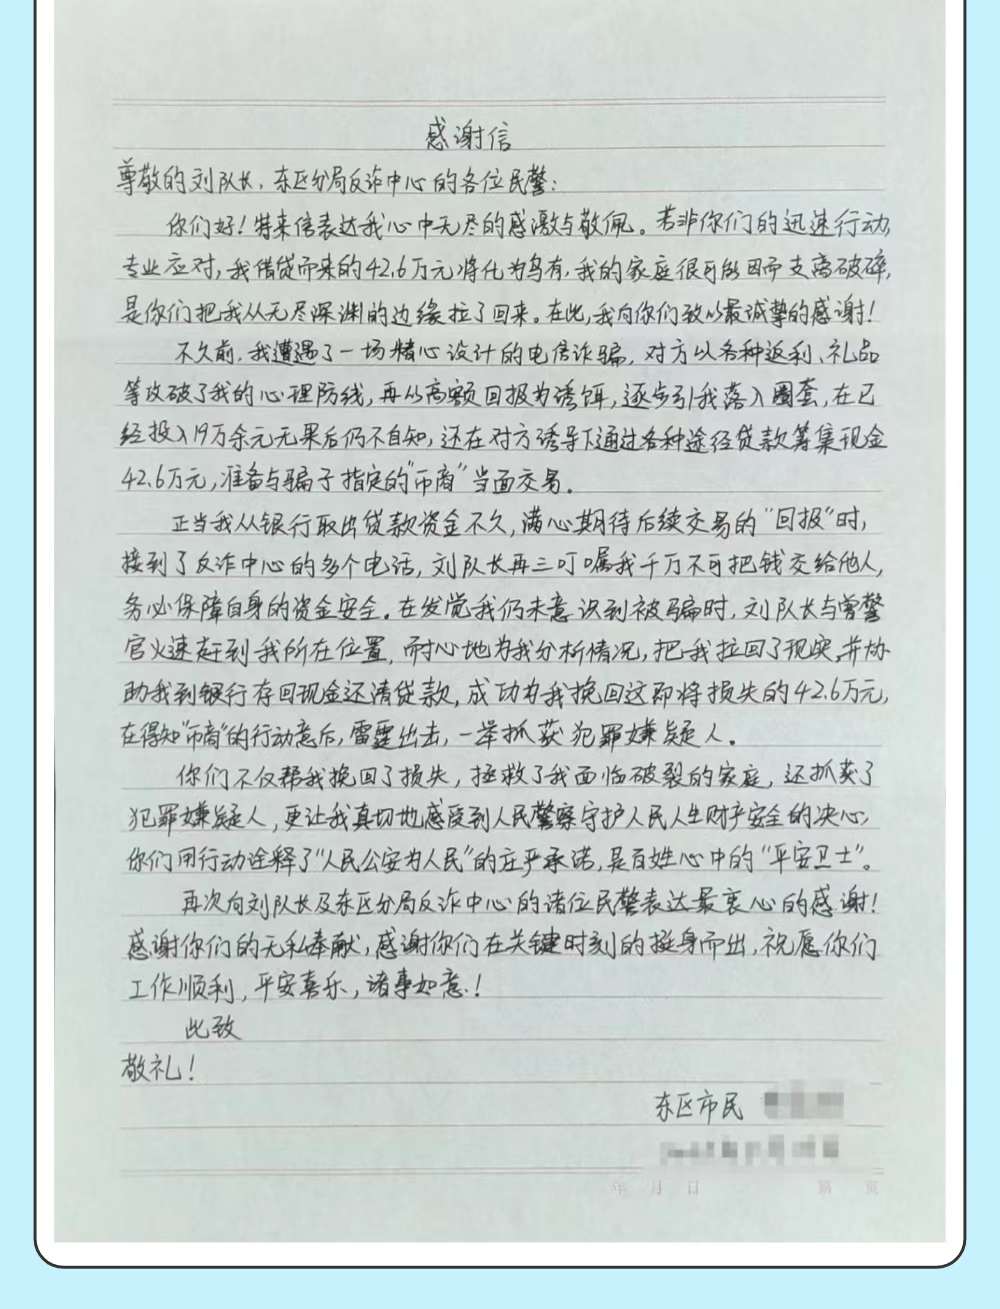 感谢信
尊敬的刘队长、东区分局反诈中心的各位民警：
你们好！特来信表达我心中无尽的感激与敬佩。若非你们的迅速行动，
专业应对，我借贷而来的42.6万元将化为乌有，我的家庭很可能因而支离破碎，
是你们把我从无尽深渊的边缘拉了回来。在此，我向你们致以最诚挚的感谢！
不久前，我遭遇了一场精心设计的电信诈骗，对方以各种返利、礼品
等攻破了我的心理防线，再以高额回报为诱饵，逐步引我落入圈套，在已
经投入19万余元无果后仍不自知，还在对方诱导下通过各种途径贷款筹集现金
42.6万元，准备与骗子指定的“币商”当面交易。
正当我从银行取出贷款资金不久，满心期待后续交易的“回报”时，
接到了反诈中心的多个电话，刘队长再三叮嘱我千万不可把钱交给他人，
务必保障自身的资金安全。在发觉我仍未意识到被骗时，刘队长与曾警
官火速赶到我所在位置，耐心地为我分析情况，把我拉回了现实，并协
助我到银行存回现金还清贷款，成功为我挽回这即将损失的42.6万元，
在得知“币商”的行动意后，雷霆出击，一举抓获犯罪嫌疑人。
你们不仅帮我挽回了损失，拯救了我面临破裂的家庭，还抓获了
犯罪嫌疑人，更让我真切地感受到人民警察守护人民人生财产安全的决心，
你们用行动诠释了“人民公安为人民”的庄严承诺，是百姓心中的“平安卫士”。
再次向刘队长及东区分局反诈中心的诸位民警表达最衷心的感谢！
感谢你们的无私奉献，感谢你们在关键时刻的挺身而出，祝愿你们
工作顺利，平安喜乐，诸事如意！
此致
敬礼！
东区市民
年 月 日 第 页